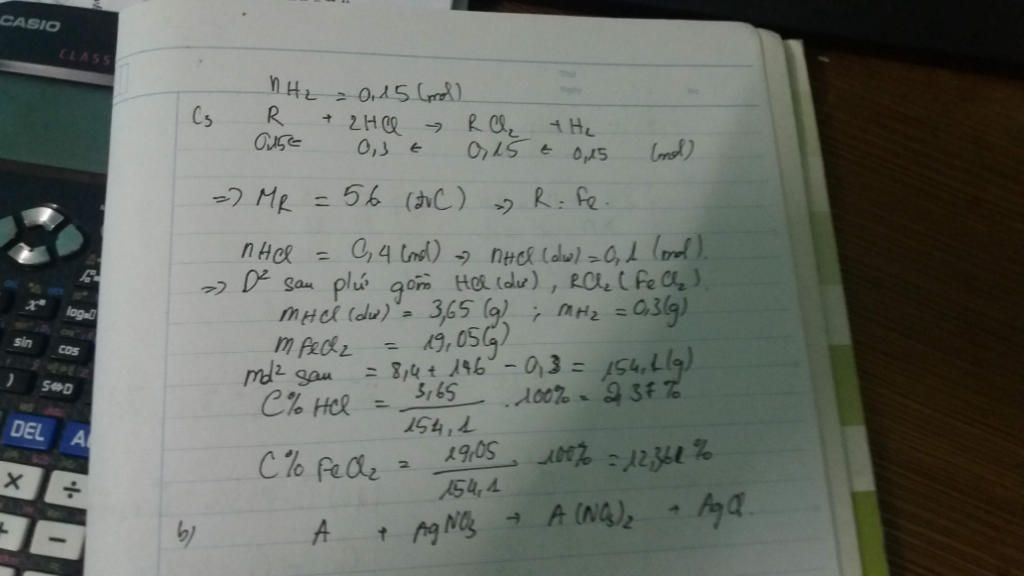 CASIO
CLASS
nH2 = 0,15 (mol)
Có R + 2HCl → RCl2 + H2
0,15 ← 0,3 ← 0,15 ← 0,15 (mol)
=> MR = 56 (đvC) => R: Fe.
nHCl = 0,4 (mol) → nHCl (dư) = 0,1 (mol).
=> D² sau phứ gồm HCl (dư), RCl2 (FeCl2).
mHCl (dư) = 3,65 (g) ; mH2 = 0,3 (g)
mFeCl2 = 19,05 (g)
md² sau = 8,4 + 146 - 0,3 = 154,1 (g)
C% HCl = 3,65 / 154,1 . 100% = 2,37%
C% FeCl2 = 19,05 / 154,1 . 100% = 12,361%
b) A + AgNO3 → A(NO3)2 + AgCl.
x^
log
sin
cos
)
S⇔D
DEL
A
×
÷
+
−